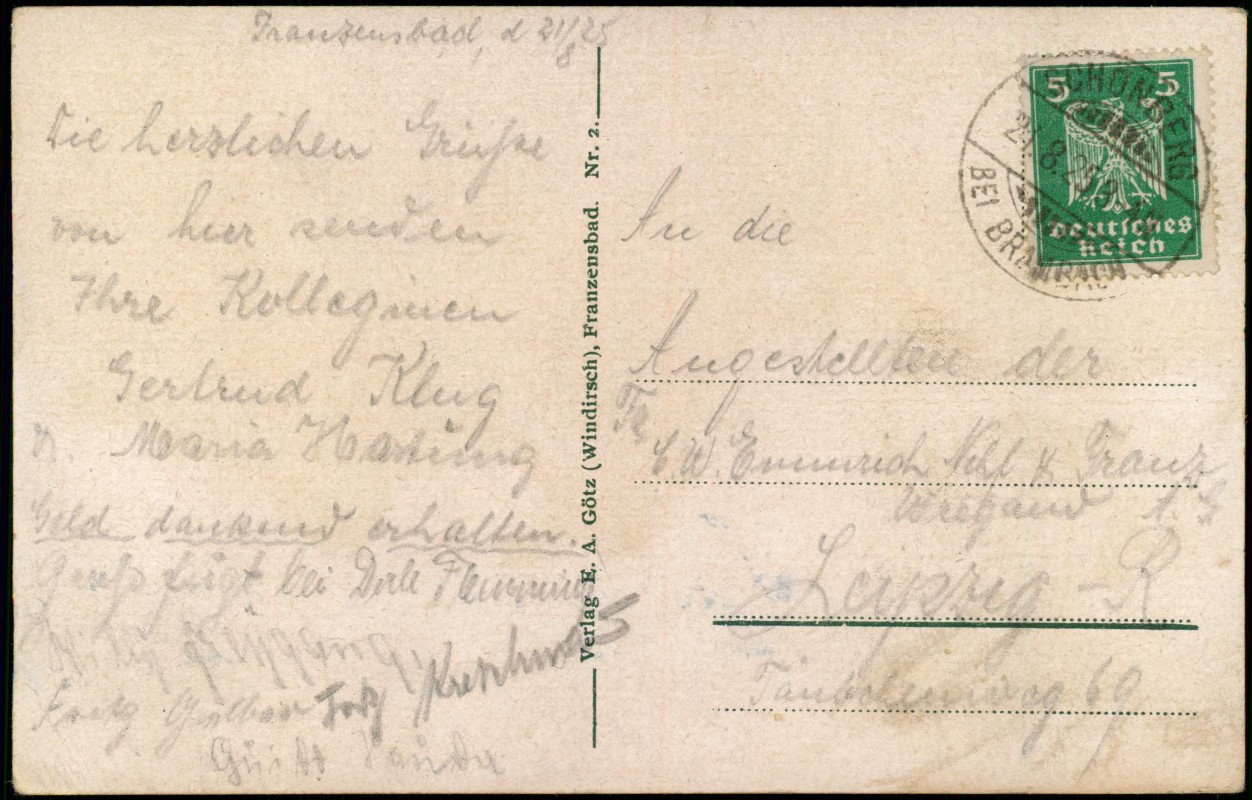 Franzensbad, d 21/8 25
Die herzlichen Grüße
von hier senden
Ihre Kolleginnen
Gertrud Klug
u. Maria Hartung
Geld dankend erhalten.
Gruß liegt bei
Fritz
Guido
Verlag E. A. Götz (Windirsch), Franzensbad. Nr. 2.
SCHÖNBERG
21.8.25
BEI BRAMBACH
5 5
Deutsches
Reich
An die
Angestellten der
Fa
C. W. Emmrich Nchf & Franz
Wiegand A G
Leipzig - R
Täubchenweg 69